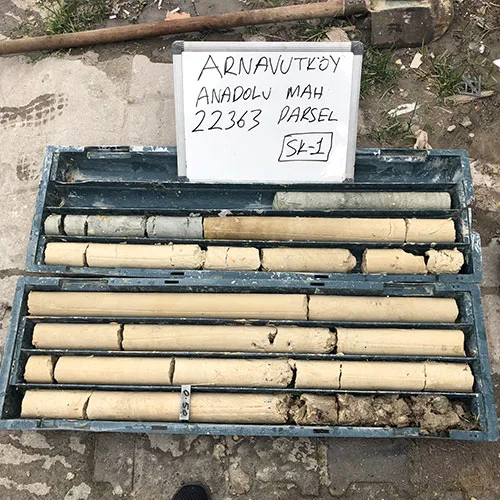 ARNAVUTKÖY
ANADOLU MAH
22363 PARSEL
SK-1
0.50